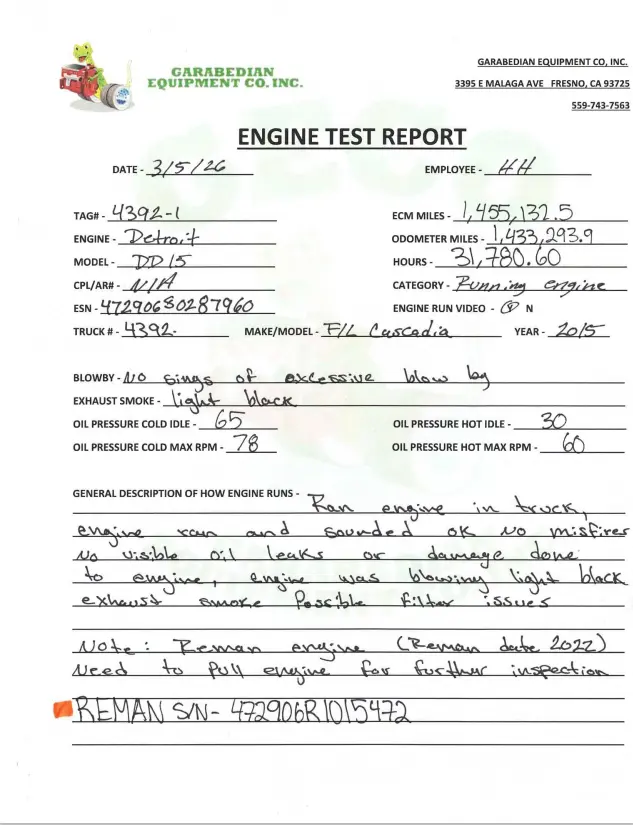 GARABEDIAN
EQUIPMENT CO. INC.
GARABEDIAN EQUIPMENT CO, INC.
3395 E MALAGA AVE FRESNO, CA 93725
559-743-7563
ENGINE TEST REPORT
DATE - 3/5/26 EMPLOYEE - HH
TAG# - 4392-1 ECM MILES - 1,455,132.5
ENGINE - Detroit ODOMETER MILES - 1,433,293.9
MODEL - DD15 HOURS - 31,780.60
CPL/AR# - N/A CATEGORY - Running engine
ESN - 472906S0287960 ENGINE RUN VIDEO - Y N
TRUCK # - 4392- MAKE/MODEL - F/L Cascadia YEAR - 2015
BLOWBY - NO sings of excessive blow by
EXHAUST SMOKE - light black
OIL PRESSURE COLD IDLE - 65 OIL PRESSURE HOT IDLE - 30
OIL PRESSURE COLD MAX RPM - 78 OIL PRESSURE HOT MAX RPM - 60
GENERAL DESCRIPTION OF HOW ENGINE RUNS - Ran engine in truck,
engine ran and sounded OK NO misfires
NO visible oil leaks or damage done
to engine, engine was blowing light black
exhaust smoke Possible filter issues
Note: Reman engine (Reman date 2022)
Need to Pull engine for further inspection
REMAN S/N- 472906R1015472